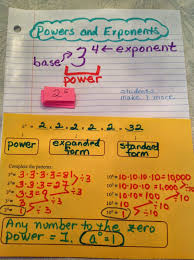 Powers and Exponents
base → 3⁴ ← exponent
power
2⁵
students make 1 more
2 . 2 . 2 . 2 . 2 . 32
power
expanded form
standard form
Complete the pattern:
3⁴ = 3·3·3·3 = 81 ÷3
3³ = 3·3·3 = 27 ÷3
÷3
÷3
10⁴ = 10·10·10·10 = 10,000 ÷10
10³ = 10·10·10 = 1,000 ÷10
÷10
÷10
Any number to the zero
power = 1. a⁰ = 1